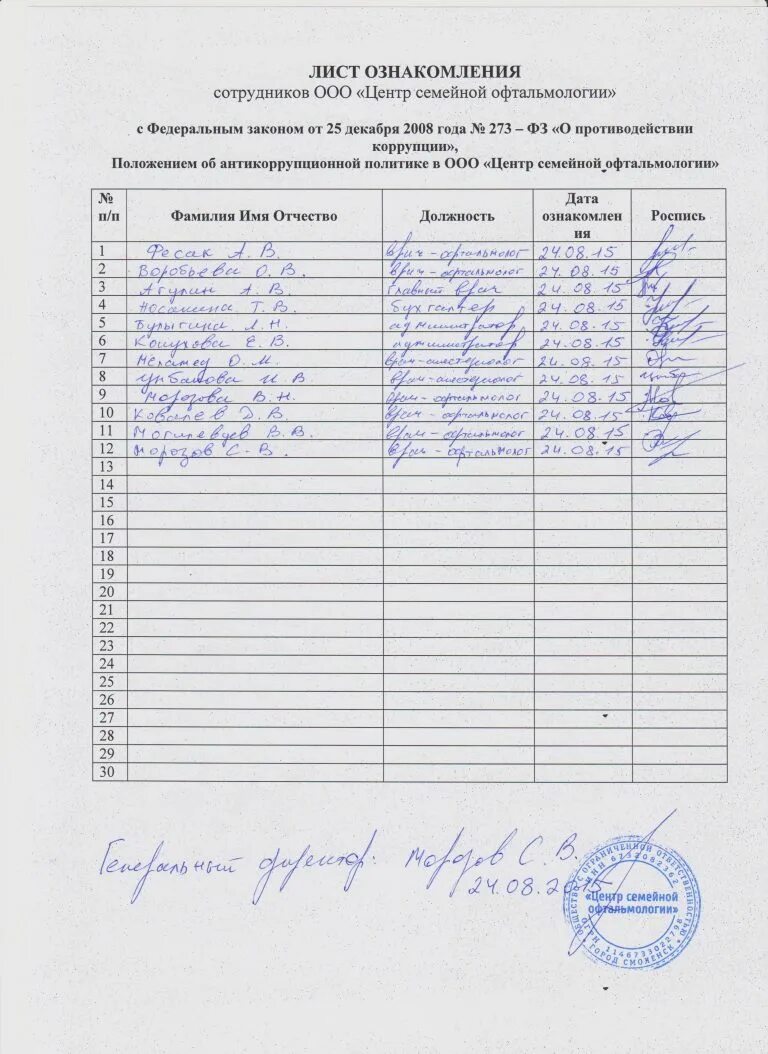 ЛИСТ ОЗНАКОМЛЕНИЯ
сотрудников ООО «Центр семейной офтальмологии»
с Федеральным законом от 25 декабря 2008 года № 273 – ФЗ «О противодействии
коррупции»,
Положением об антикоррупционной политике в ООО «Центр семейной офтальмологии»
№ п/п Фамилия Имя Отчество Должность Дата ознакомлен ия Роспись
1 Фесак А. В. врач-офтальмолог 24.08.15
2 Воробьева О. В. врач-офтальмолог 24.08.15
3 Агулин А. В. главный врач 24.08.15
4 Т. В. бухгалтер 24.08.15
5 Булыгина Л. Н. администратор 24.08.15
6 Е. В. администратор 24.08.15
7 О. М. 24.08.15
8 И. В 24.08.15
9 Морозова В. Н. врач-офтальмолог 24.08.15
10 Ковалев Д. В. врач-офтальмолог 24.08.15
11 Могилевцев В. В. врач-офтальмолог 24.08.15
12 Морозов С. В. врач-офтальмолог 24.08.15
13
14
15
16
17
18
19
20
21
22
23
24
25
26
27
28
29
30
Генеральный директор: Морозов С. В.
24.08.2015
ОБЩЕСТВО С ОГРАНИЧЕННОЙ ОТВЕТСТВЕННОСТЬЮ
ИНН 6732082362
«Центр семейной
офтальмологии»
ОГРН 1146733022798
ГОРОД СМОЛЕНСК